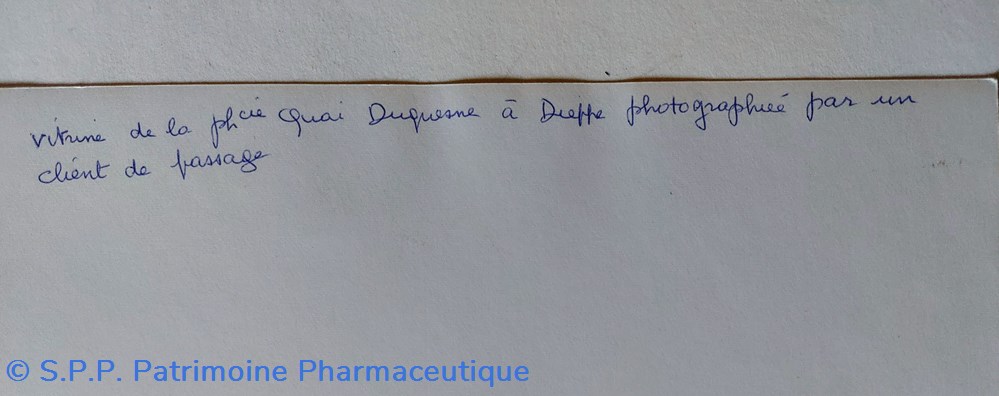 vitrine de la phcie Quai Duquesne à Dieppe photographiée par un
client de passage
© S.P.P. Patrimoine Pharmaceutique